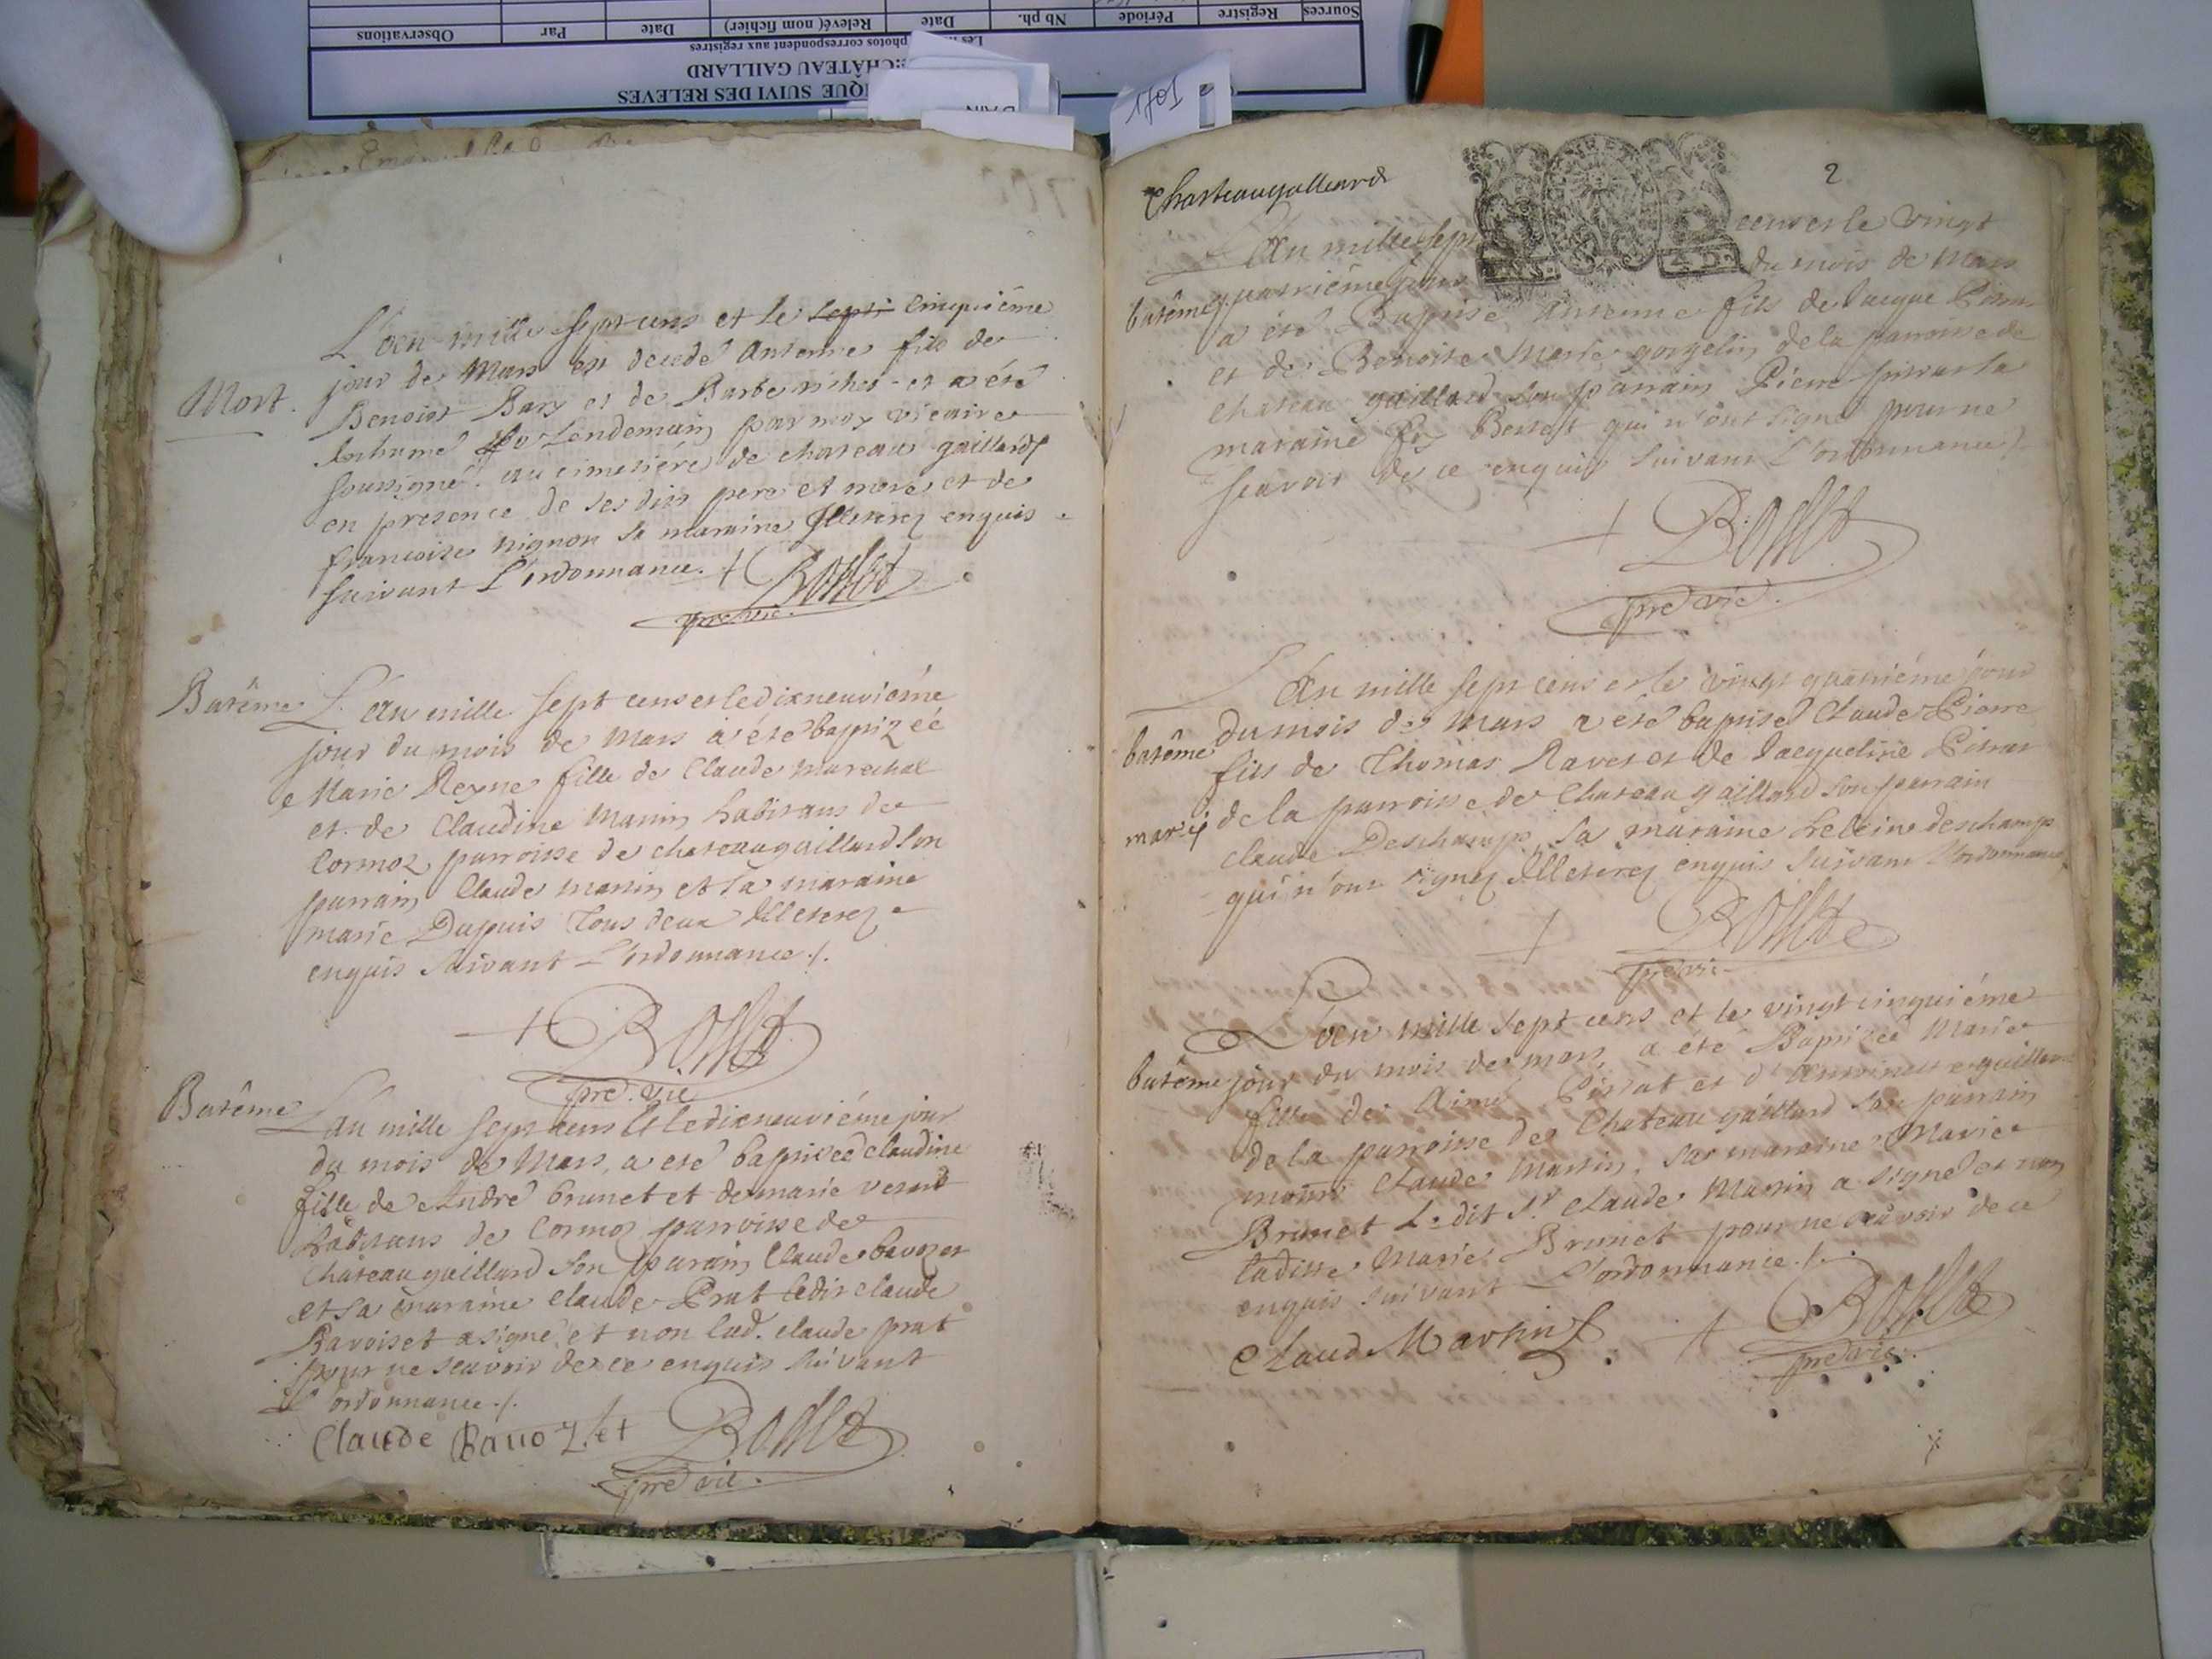 Sources Registre Période Nb ph. Date Relevé( nom fichier) Date Par Observations
photos correspondent aux registres
CHÂTEAU GAILLARD
QUE SUIVI DES RELEVES
1701
Mort.
L'an mille sept cens et le septi cinquième
jour de Mars est decedé Antoine fils de
Benoist Bary et de Barbe et a été
Inhumé Le Lendemain par moy vicaire
soussigné au cimetiére de chateau gaillard
en presence de ses dits pere et mere et de
francoise nignon sa maraine Illeterez enquis
suivant L'ordonnance. + Bosset
pre vic.
Batême
L'an mille sept cens et le dixneuviéme
jour du mois de Mars a été baptizéé
Marie Reyne fille de Claude marechal
et de Claudine Manin habitans de
Cormoz parroisse de chateaugaillard son
parrain Claude manin et sa maraine
marie Dupuis Tous deux Illeterez
enquis suivant L'ordonnance ./.
+ Bosset
pre. vic
Batême
L'an mille sept cens et le dixneuviéme jour
du mois de Mars, a eté baptisée claudine
fille de André brunet et de marie
habitans de Cormoz parroisse de
Chateau gaillard son parain Claude bavozet
et sa maraine claude Prat ledit claude
Bavoiset a signé, et non lad. claude prat
pour ne scavoir de ce enquis suivant
L'ordonnance ./.
Claude Bauozet Bosset
pre vic.
Chasteaugalliard
2
L'An mille sept cens et le vingt
batême quatriéme jour du mois de Mars
a été Baptisé Antoine fils de Jacque
et de Benoite Marie gorgelin de la parroisse de
chateau gaillard son parrain Pierre
maraine qui n'ont signé pour ne
scavoir de ce enquis suivant L'ordonnance ./.
+ Bosset
pre vic.
L'An mille sept cens et le vingt quatriéme jour
batême du mois de Mars a eté baptisé Claude Pierre
fils de Thomas Ravet et de Jacqueline Pitrat
de la parroisse de Chateau gaillard son parrain
claude Deschamp, sa maraine deschamp
qui n'ont signez Illeterez enquis suivant l'ordonnance
+ Bosset
pre vic
L'an mille sept cens et le vingt cinquiéme
batême jour du mois de mars, a été Baptizée Marie
fille de Aimé Pitrat et d'
de la parroisse de Chateau gaillard son parrain
Claude Martin, sa maraine Marie
Brunet Ledit Sr Claude Martin a signé et non
ladite Marie Brunet pour ne scavoir de ce
enquis suivant L'ordonnance ./.
Claude Martin + Bosset
pre vic.